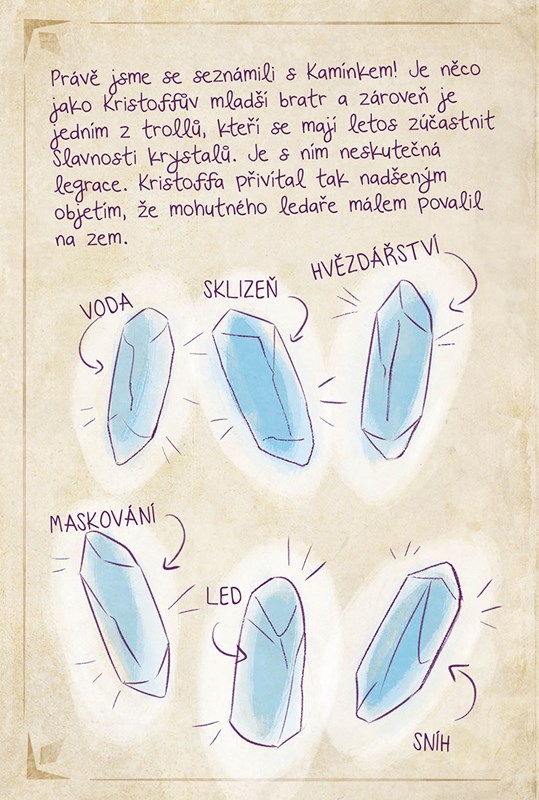 Právě jsme se seznámili s Kamínkem! Je něco
jako Kristoffův mladší bratr a zároveň je
jedním z trollů, kteří se mají letos zúčastnit
Slavnosti krystalů. Je s ním neskutečná
legrace. Kristoffa přivítal tak nadšeným
objetím, že mohutného ledaře málem povalil
na zem.
VODA
SKLIZEŇ
HVĚZDÁŘSTVÍ
MASKOVÁNÍ
LED
SNÍH